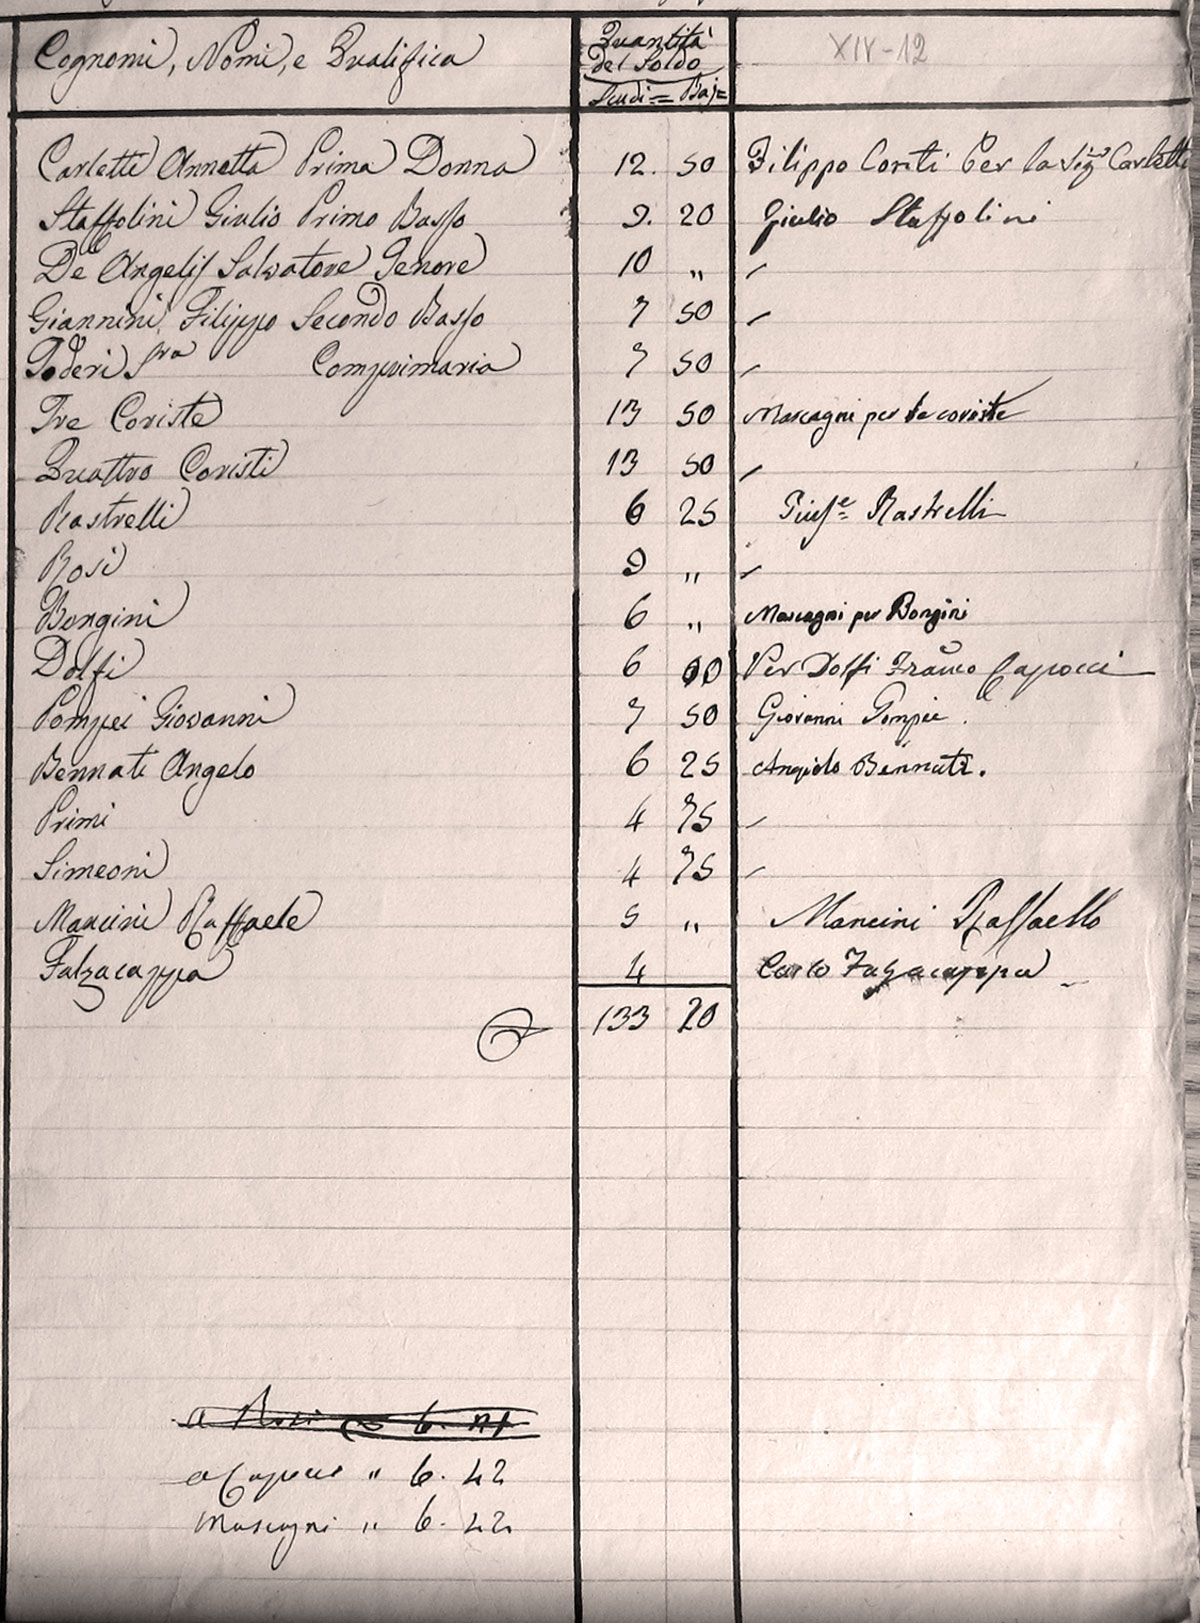 Cognomi, Nomi, e Qualifica
Quantità del Soldo
Scudi = Baj=
XIV-12
Carletti Annetta Prima Donna 12. 50 Filippo Conti Per la Sigra Carletti
Staffolini Giulio Primo Basso 9. 20 Giulio Staffolini
De Angelis Salvatore Tenore 10 "
Giannini Filippo Secondo Basso 7 50
Poderi Sra Comprimaria 7 50
Tre Coriste 13 50 Mascagni per le coriste
Quattro Coristi 13 50
Rastrelli 6 25 Giuse Rastrelli
Rosi 9 "
Bongini 6 " Mascagni per Bongini
Dolfi 6 00 Per Dolfi Franco Capocci
Pompei Giovanni 7 50 Giovanni Pompei.
Bennati Angelo 6 25 Angiolo Bennati.
Primi 4 75
Simeoni 4 75
Mancini Raffaele 5 " Mancini Raffaello
Falzacappa 4 Carlo Falzacappa
133 20
a Rosi 6.
a Capocci " 6. 42
Mascagni " 6. 42